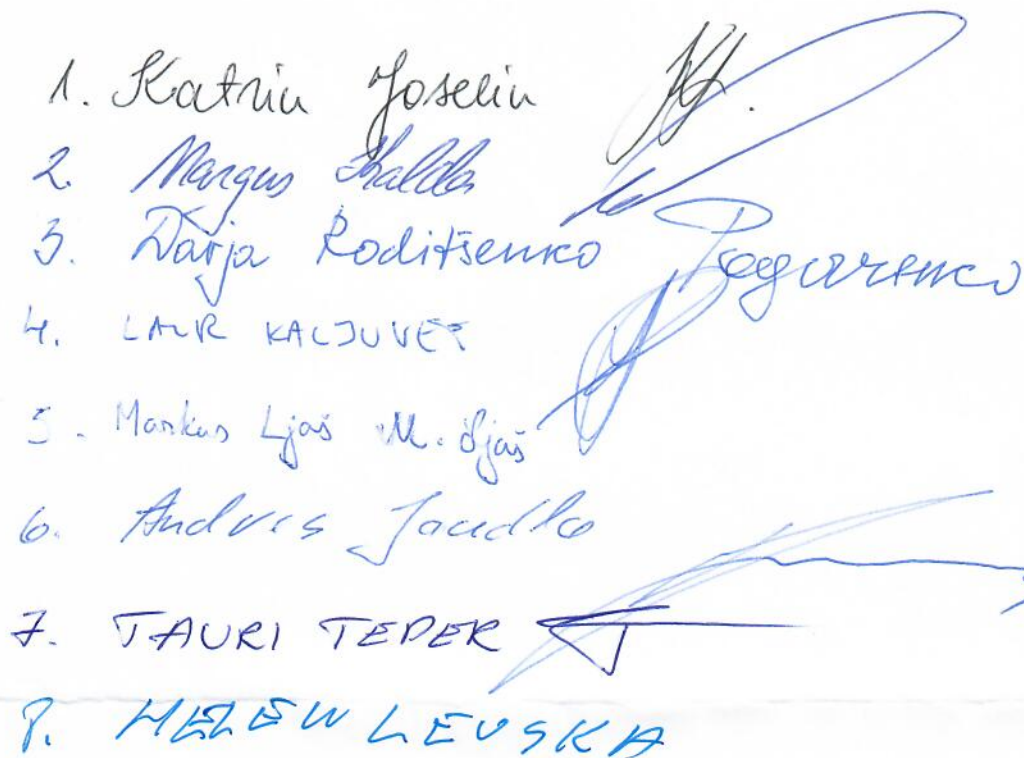 1. Katrin Joselin
2. Margus Kalda
3. Darja Roditšenko
4. LAUR KALJUVEE
5. Markus Ljaš M. Ljaš
6. Andres Jandla
7. TAURI TEDER
8. HELEN LEVSKA